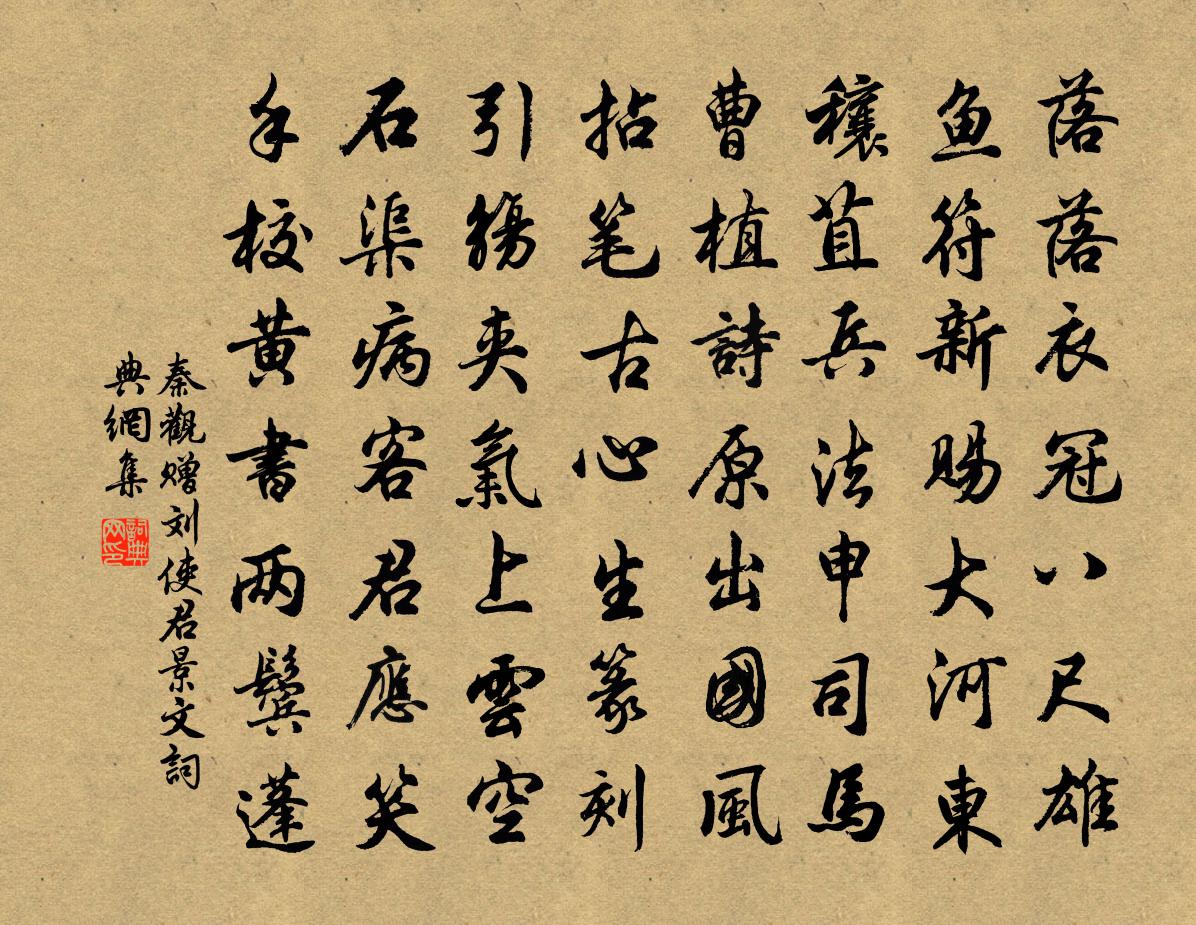 落落衣冠八尺雄
魚符新賜大河東
穰苴兵法申司馬
曹植詩原出國風
拈笔古心生篆刻
引觴侠氣上雲空
石渠病客君應笑
手校黄書两鬓蓬
秦觀赠刘使君景文詞
典網集
詞典网印